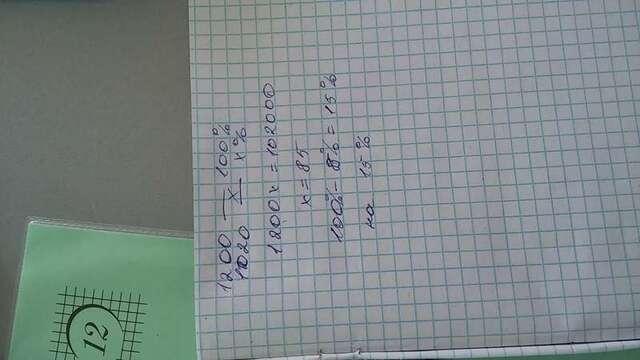 12
1200 — 100%
1020 — x%
x
1200x = 102000
x = 85
100% - 85% = 15%
на 15%